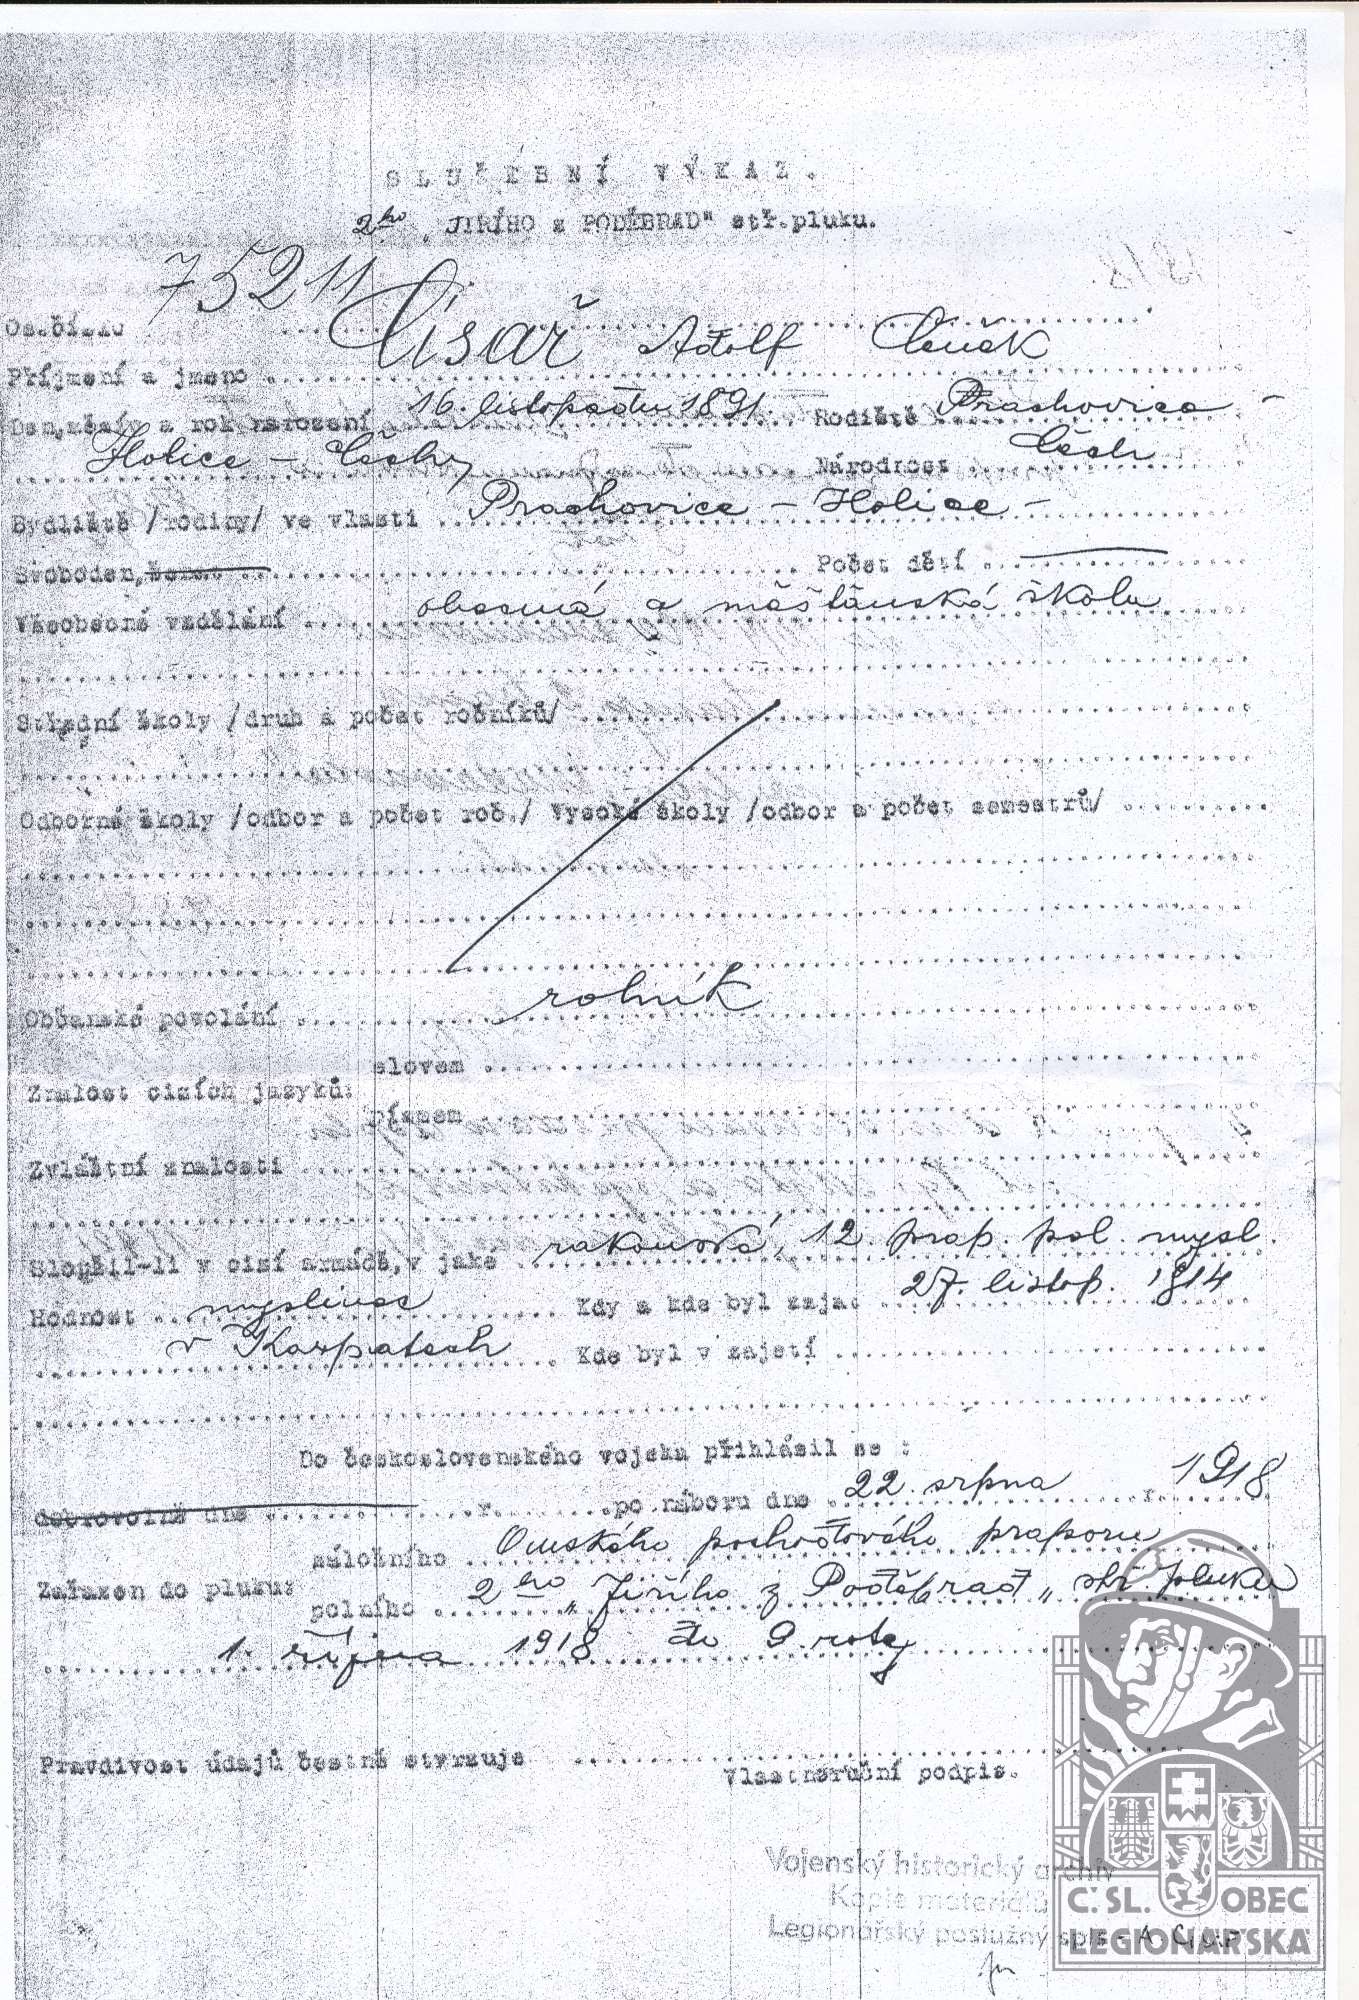 SLUŽEBNÍ VÝKAZ.
2ho „JIŘÍHO z PODĚBRAD" stř.pluku.
75211
Os.číslo
Císař Adolf Čeněk
Příjmení a jmeno
Den,měsíc a rok narození 16. listopadu 1891 Rodiště Prachovice -
Holice - Čechy Národnost Čech
Bydliště /rodiny/ ve vlasti Prachovice - Holice -
Svoboden, Počet dětí
Všeobecné vzdělání obecná a měšťanská škola
Střední školy /druh a počet ročníků/
Odborné školy /odbor a počet roč./ Vysoké školy /odbor a počet semestrů/
Občanské povolání rolník
slovem
Znalost cizích jazyků:
písmem
Zvláštní znalosti
Sloužil-li v cizí armádě,v jaké rakouská, 12. prap. pol. mysl.
Hodnost myslivec Kdy a kde byl zajat 27. listop. 1914
v Karpatech Kde byl v zajetí
Do československého vojska přihlásil se :
dobrovolně dne r. po náboru dne 22. srpna r. 1918
záložního Omského pochodového praporu
Zařazen do pluku:
polního 2ho „Jiřího z Poděbrad„ stř. pluku
1. října 1918 do 9. roty
Pravdivost údajů čestně stvrzuje
Vlastnoruční podpis.
Vojenský historický archiv
Kopie materiálu
Legionářský poslužný spis - A. Císař
Č. SL. OBEC
LEGIONÁŘSKÁ